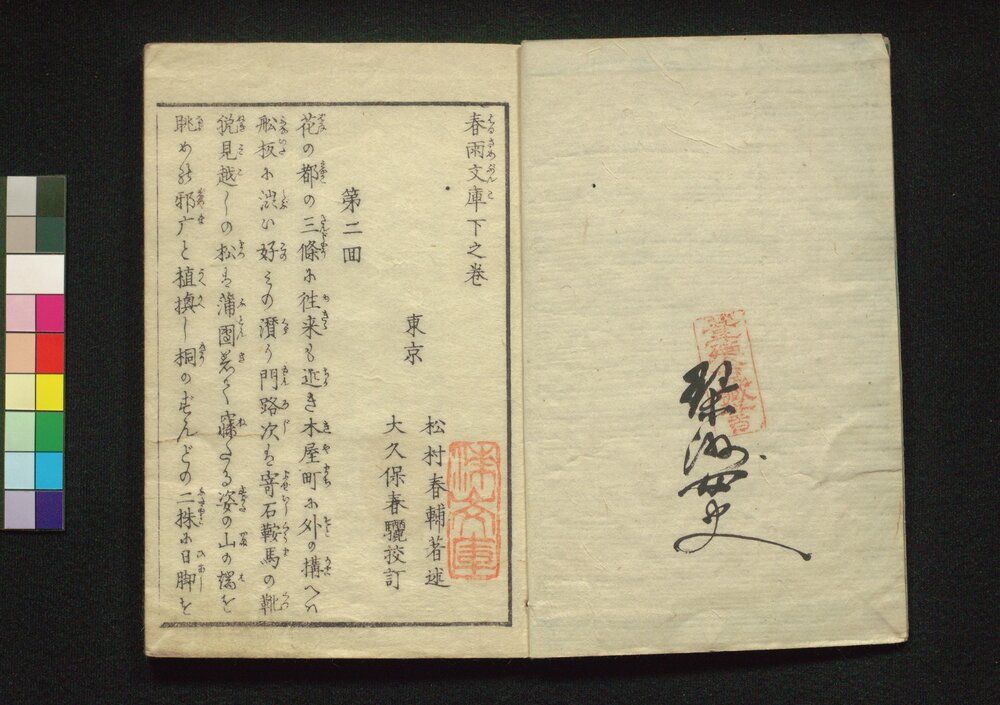 春雨文庫下之巻
東京
松村春輔著述
大久保春驪挍訂
第二回
花の都の三條に往来も近き木屋町に外の構へハ
舩板に渋い好みの潜り門路次は寄石鞍馬の靴
脱見越しの松は蒲団着て寐たる姿の山の端を
眺めの邪广と植換し桐のずんどの二株に日脚を